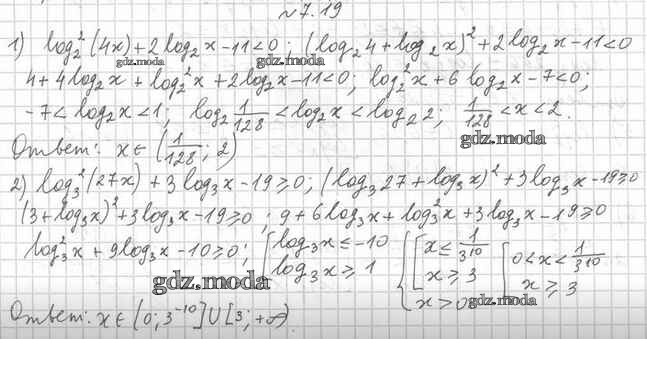 №7.19
1) log₂²(4x)+2log₂x-11<0; (log₂4+log₂x)²+2log₂x-11<0
gdz.moda gdz.moda
4+4log₂x+log₂²x+2log₂x-11<0; log₂²x+6log₂x-7<0;
-7<log₂x<1; log₂ 1/128 <log₂x<log₂2; 1/128 <x<2.
gdz.moda
Ответ: x∈(1/128; 2)
2) log₃²(27x)+3log₃x-19≥0; (log₃27+log₃x)²+3log₃x-19≥0
(3+log₃x)²+3log₃x-19≥0; 9+6log₃x+log₃²x+3log₃x-19≥0
log₃²x+9log₃x-10≥0; [log₃x≤-10 {[x≤ 1/3¹⁰ [0<x<1/3¹⁰
log₃x≥1 x≥3 x≥3
x>0
gdz.moda gdz.moda
Ответ: x∈(0; 3⁻¹⁰]∪[3; +∞).